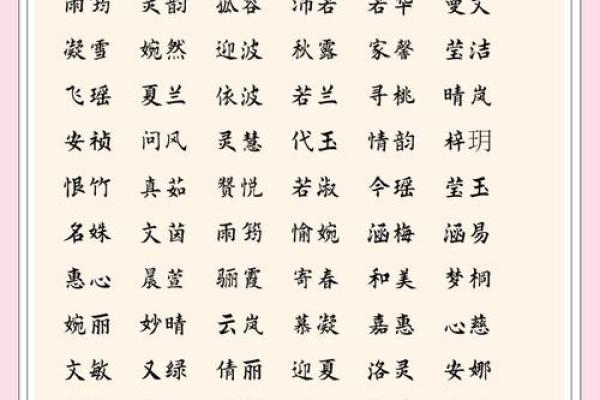 雨筠 灵韵 孤容 沛若 若华 曼文
凝雪 婉然 迎波 秋露 家馨 莹洁
飞瑶 夏兰 依波 若兰 寻桃 晴岚
安祯 问风 灵慧 代玉 情韵 梓玥
恨竹 真茹 赟悦 若淑 今瑶 莹玉
名姝 文茵 雨筠 愉婉 涵梅 涵易
惠心 晨萱 骊霞 寄春 和美 梦桐
婉丽 妙晴 云岚 慕凝 嘉惠 心慈
文敏 又绿 倩丽 迎夏 洛灵 安娜